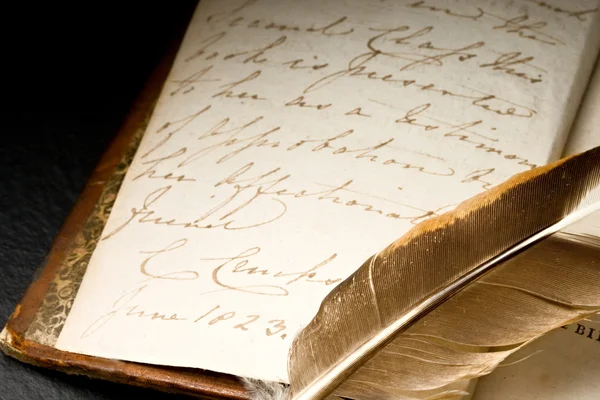 and the
Second Class this
book is presented
to her as a testimony
of approbation by
her affectionate
friend
C
June 1823.
BI